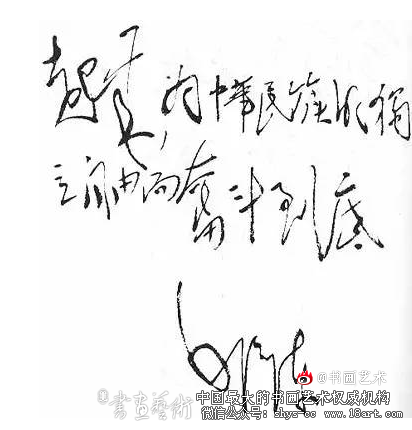 起来,为中華民族的獨
立自由而奮斗到底
@书画艺术
書畫藝術
中国最大的书画艺术权威机构
微信公众号: shys-cc www.18art.com